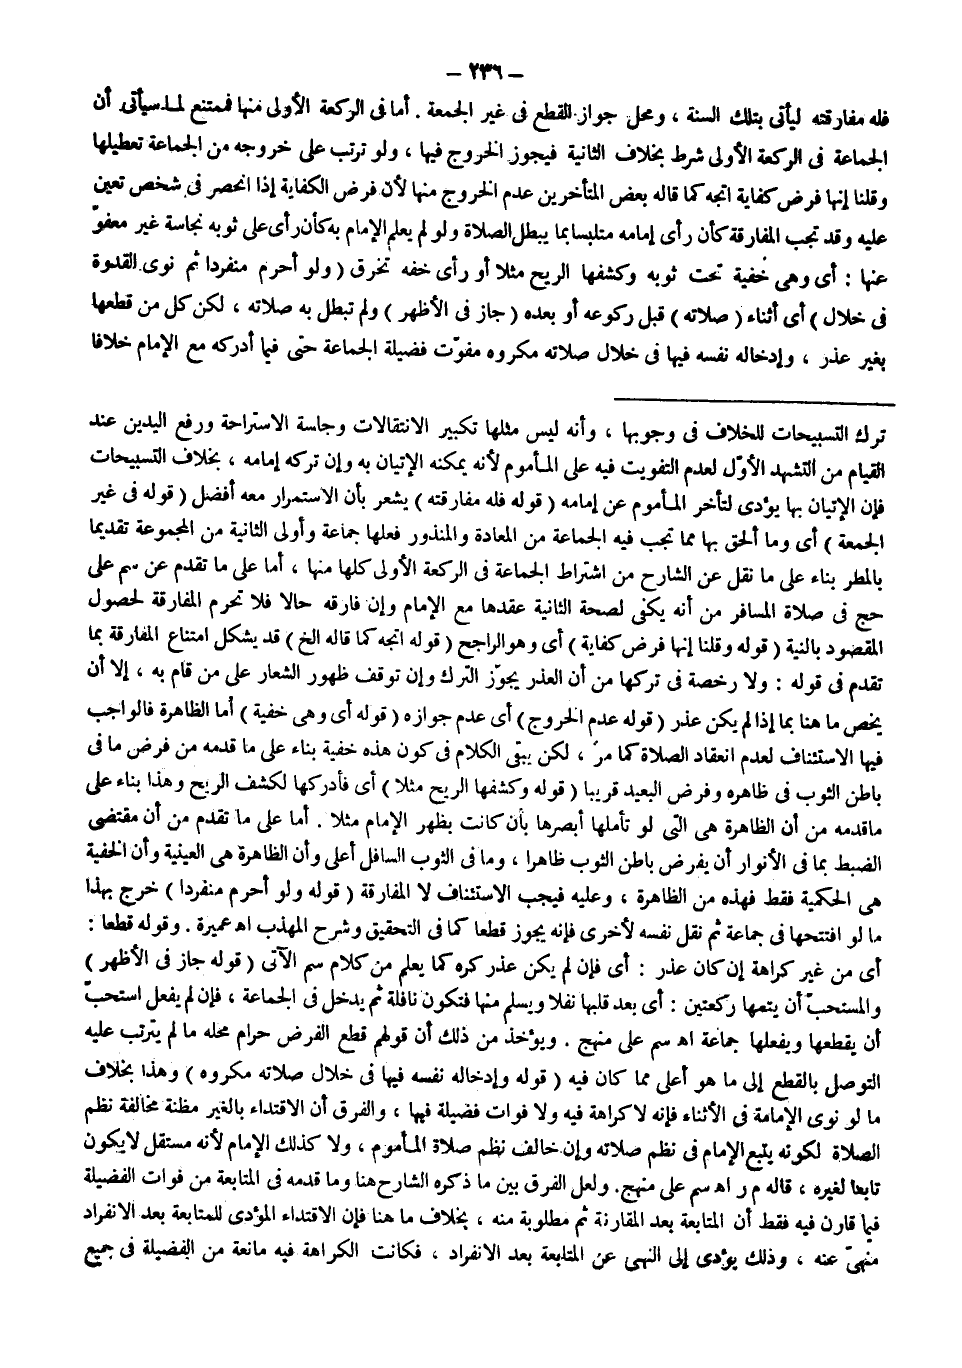 – ٢٣٦ –
فله مفارقته ليأتى بتلك السنة ، ومحل جواز القطع فى غير الجمعة . أما فى الركعة الأولى منها فممتنع لما سيأتى أن
الجماعة فى الركعة الأولى شرط بخلاف الثانية فيجوز الخروج فيها ، ولو ترتب على خروجه من الجماعة تعطيلها
وقلنا إنها فرض كفاية اتجه كما قاله بعض المتأخرين عدم الخروج منها لأن فرض الكفاية إذا انحصر فى شخص تعين
عليه وقد تجب المفارقة كأن رأى إمامه متلبسا بما يبطل الصلاة ولو لم يعلم الإمام به كأن رأى على ثوبه نجاسة غير معفوّ
عنها : أى وهى خفية تحت ثوبه وكشفها الريح مثلا أو رأى خفه تخرق ( ولو أحرم منفردا ثم نوى القدوة
فى خلال ) أى أثناء ( صلاته ) قبل ركوعه أو بعده ( جاز فى الأظهر ) ولم تبطل به صلاته ، لكن كل من قطعها
بغير عذر ، وإدخاله نفسه فيها فى خلال صلاته مكروه مفوّت فضيلة الجماعة حتى فيما أدركه مع الإمام خلافا
ترك التسبيحات للخلاف فى وجوبها ، وأنه ليس مثلها تكبير الانتقالات وجلسة الاستراحة ورفع اليدين عند
القيام من التشهد الأوّل لعدم التفويت فيه على المأموم لأنه يمكنه الإتيان به وإن تركه إمامه ، بخلاف التسبيحات
فإن الإتيان بها يؤدى لتأخر المأموم عن إمامه ( قوله فله مفارقته ) يشعر بأن الاستمرار معه أفضل ( قوله فى غير
الجمعة ) أى وما ألحق بها مما تجب فيه الجماعة من المعادة والمنذور فعلها جماعة وأولى الثانية من المجموعة تقديما
بالمطر بناء على ما نقل عن الشارح من اشتراط الجماعة فى الركعة الأولى كلها منها ، أما على ما تقدم عن سم على
حج فى صلاة المسافر من أنه يكفى لصحة الثانية عقدها مع الإمام وإن فارقه حالا فلا تحرم المفارقة لحصول
المقصود بالنية ( قوله وقلنا إنها فرض كفاية ) أى وهو الراجح ( قوله اتجه كما قاله الخ ) قد يشكل امتناع المفارقة بما
تقدم فى قوله : ولا رخصة فى تركها من أن العذر يجوّز الترك وإن توقف ظهور الشعار على من قام به ، إلا أن
يخص ما هنا بما إذا لم يكن عذر ( قوله عدم الخروج ) أى عدم جوازه ( قوله أى وهى خفية ) أما الظاهرة فالواجب
فيها الاستئناف لعدم انعقاد الصلاة كما مرّ ، لكن يبقى الكلام فى كون هذه خفية بناء على ما قدمه من فرض ما فى
باطن الثوب فى ظاهره وفرض البعيد قريبا ( قوله وكشفها الريح مثلا ) أى فأدركها لكشف الريح وهذا بناء على
ماقدمه من أن الظاهرة هى التى لو تأملها أبصرها بأن كانت بظهر الإمام مثلا . أما على ما تقدم من أن مقتضى
الضبط بما فى الأنوار أن يفرض باطن الثوب ظاهرا ، وما فى الثوب السافل أعلى وأن الظاهرة هى العينية وأن الخفية
هى الحكمية فقط فهذه من الظاهرة ، وعليه فيجب الاستئناف لا المفارقة ( قوله ولو أحرم منفردا ) خرج بهذا
ما لو افتتحها فى جماعة ثم نقل نفسه لأخرى فإنه يجوز قطعا كما فى التحقيق وشرح المهذب اه عميرة . وقوله قطعا :
أى من غير كراهة إن كان عذر : أى فإن لم يكن عذر كره كما يعلم من كلام سم الآتى ( قوله جاز فى الأظهر )
والمستحبّ أن يتمها ركعتين : أى بعد قلبها نفلا ويسلم منها فتكون نافلة ثم يدخل فى الجماعة ، فإن لم يفعل استحبّ
أن يقطعها ويفعلها جماعة اه سم على منهج . ويؤخذ من ذلك أن قولهم قطع الفرض حرام محله ما لم يترتب عليه
التوصل بالقطع إلى ما هو أعلى مما كان فيه ( قوله وإدخاله نفسه فيها فى خلال صلاته مكروه ) وهذا بخلاف
ما لو نوى الإمامة فى الأثناء فإنه لاكراهة فيه ولا فوات فضيلة فيها ، والفرق أن الاقتداء بالغير مظنة مخالفة نظم
الصلاة لكونه يتبع الإمام فى نظم صلاته وإن خالف نظم صلاة المأموم ، ولا كذلك الإمام لأنه مستقل لايكون
تابعا لغيره ، قاله م ر اه سم على منهج. ولعل الفرق بين ما ذكره الشارح هنا وما قدمه فى المتابعة من فوات الفضيلة
فيما قارن فيه فقط أن المتابعة بعد المقارنة ثم مطلوبة منه ، بخلاف ما هنا فإن الاقتداء المؤدى للمتابعة بعد الانفراد
منهىّ عنه ، وذلك يؤدى إلى النهى عن المتابعة بعد الانفراد ، فكانت الكراهة فيه مانعة من الفضيلة فى جميع